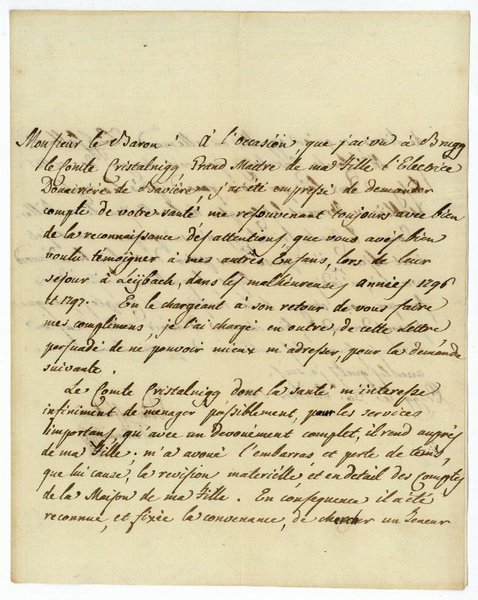 Monsieur le Baron! À l'occasion que j'ai vu à Brugg
le Comte Cristalnigg, Grand Maitre de ma Fille l'Electrice
Douairière de Bavière, j'ai été empressé de demander
compte de votre santé me resouvenant toujours avec bien
de la reconnaissance des attentions, que vous avés bien
voulu témoigner à mes autres Enfans, lors de leur
séjour à Leÿbach, dans les malheureuses années 1796
et 1797. En le chargeant à son retour de vous faire
mes complimens, je l'ai chargé en outre, de cette lettre
persuadé de ne pouvoir mieux m'adresser, pour la demande
suivante.
Le Comte Cristalnigg dont la santé m'interesse
infiniment de menager possiblement, pour les services
importans, qu'avec un devouément complet, il rend auprès
de ma Fille, m'a avoué l'embarras et perte de tems,
que lui cause, la revision materielle, et en detail des Comptes
de la Maison de ma Fille. En consequence il a été
reconnue, et fixée la convenance, de chercher un Teneur